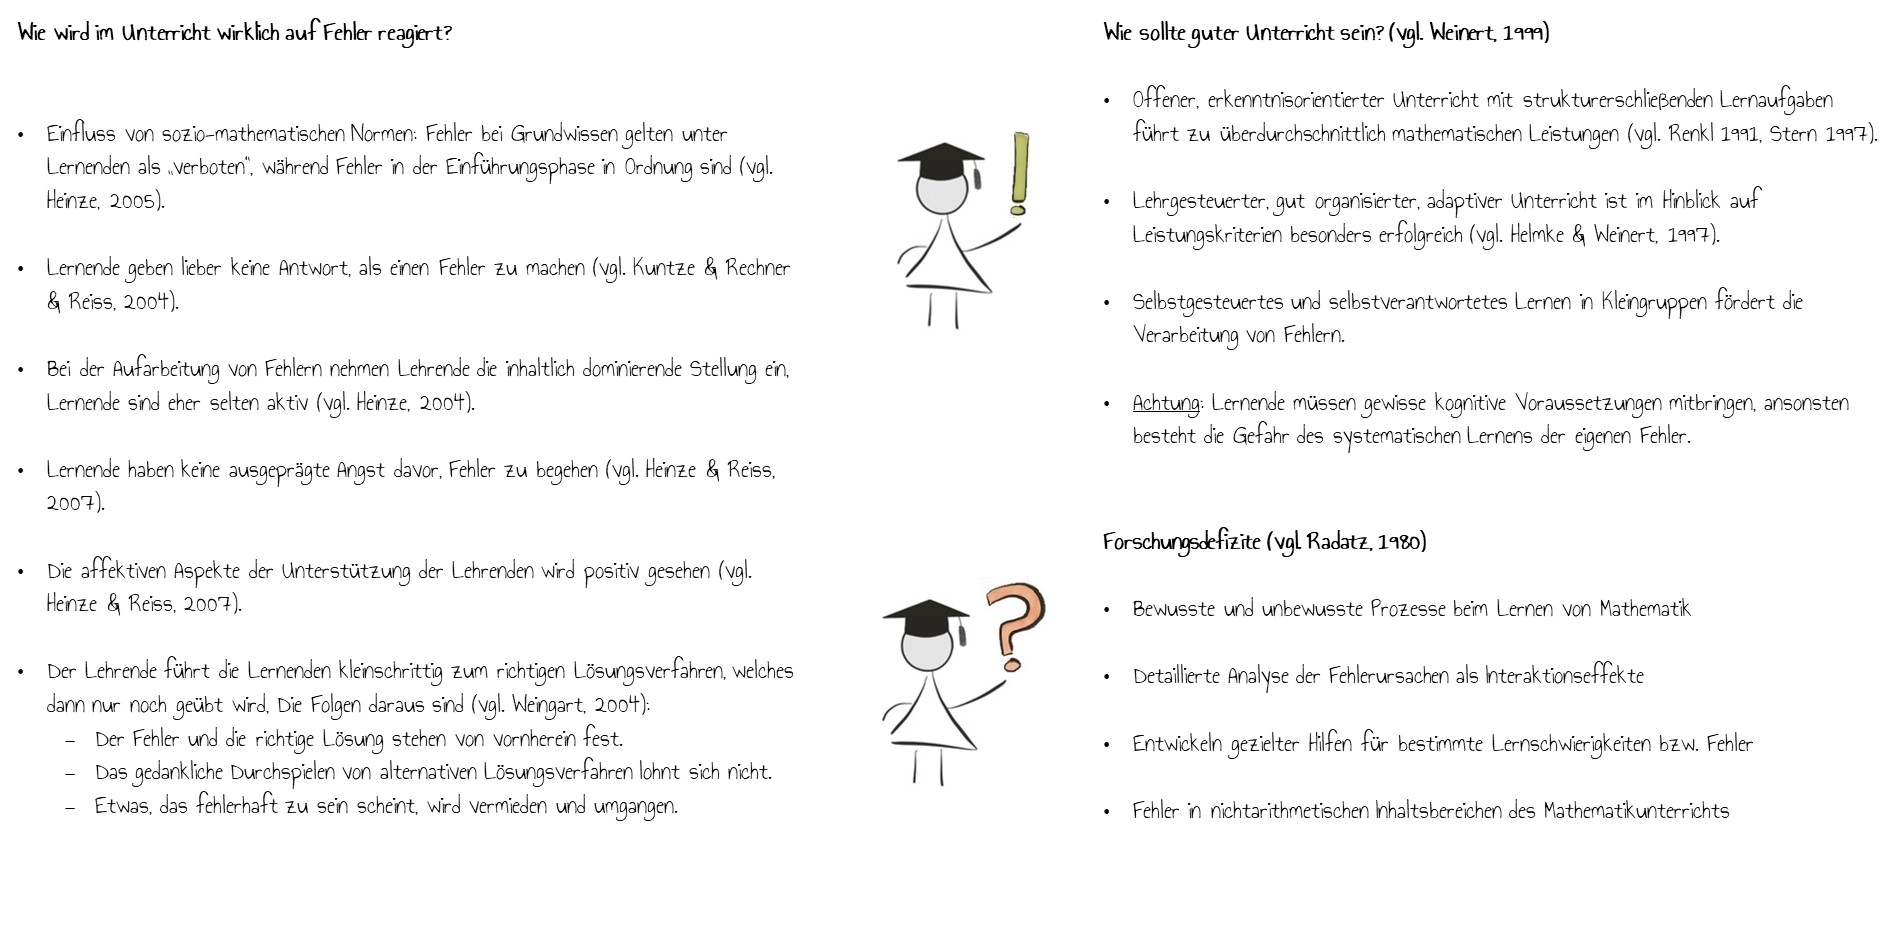 Wie wird im Unterricht wirklich auf Fehler reagiert?
• Einfluss von sozio-mathematischen Normen: Fehler bei Grundwissen gelten unter
Lernenden als „verboten“, während Fehler in der Einführungsphase in Ordnung sind (vgl.
Heinze, 2005).
• Lernende geben lieber keine Antwort, als einen Fehler zu machen (vgl. Kuntze & Rechner
& Reiss, 2004).
• Bei der Aufarbeitung von Fehlern nehmen Lehrende die inhaltlich dominierende Stellung ein,
Lernende sind eher selten aktiv (vgl. Heinze, 2004).
• Lernende haben keine ausgeprägte Angst davor, Fehler zu begehen (vgl. Heinze & Reiss,
2007).
• Die affektiven Aspekte der Unterstützung der Lehrenden wird positiv gesehen (vgl.
Heinze & Reiss, 2007).
• Der Lehrende führt die Lernenden kleinschrittig zum richtigen Lösungsverfahren, welches
dann nur noch geübt wird, Die Folgen daraus sind (vgl. Weingart, 2004):
– Der Fehler und die richtige Lösung stehen von vornherein fest.
– Das gedankliche Durchspielen von alternativen Lösungsverfahren lohnt sich nicht.
– Etwas, das fehlerhaft zu sein scheint, wird vermieden und umgangen.
Wie sollte guter Unterricht sein? (vgl. Weinert, 1999)
• Offener, erkenntnisorientierter Unterricht mit strukturerschließenden Lernaufgaben
führt zu überdurchschnittlich mathematischen Leistungen (vgl. Renkl 1991, Stern 1997).
• Lehrgesteuerter, gut organisierter, adaptiver Unterricht ist im Hinblick auf
Leistungskriterien besonders erfolgreich (vgl. Helmke & Weinert, 1997).
• Selbstgesteuertes und selbstverantwortetes Lernen in Kleingruppen fördert die
Verarbeitung von Fehlern.
• Achtung: Lernende müssen gewisse kognitive Voraussetzungen mitbringen, ansonsten
besteht die Gefahr des systematischen Lernens der eigenen Fehler.
Forschungsdefizite (vgl. Radatz, 1980)
• Bewusste und unbewusste Prozesse beim Lernen von Mathematik
• Detaillierte Analyse der Fehlerursachen als Interaktionseffekte
• Entwickeln gezielter Hilfen für bestimmte Lernschwierigkeiten bzw. Fehler
• Fehler in nichtarithmetischen Inhaltsbereichen des Mathematikunterrichts